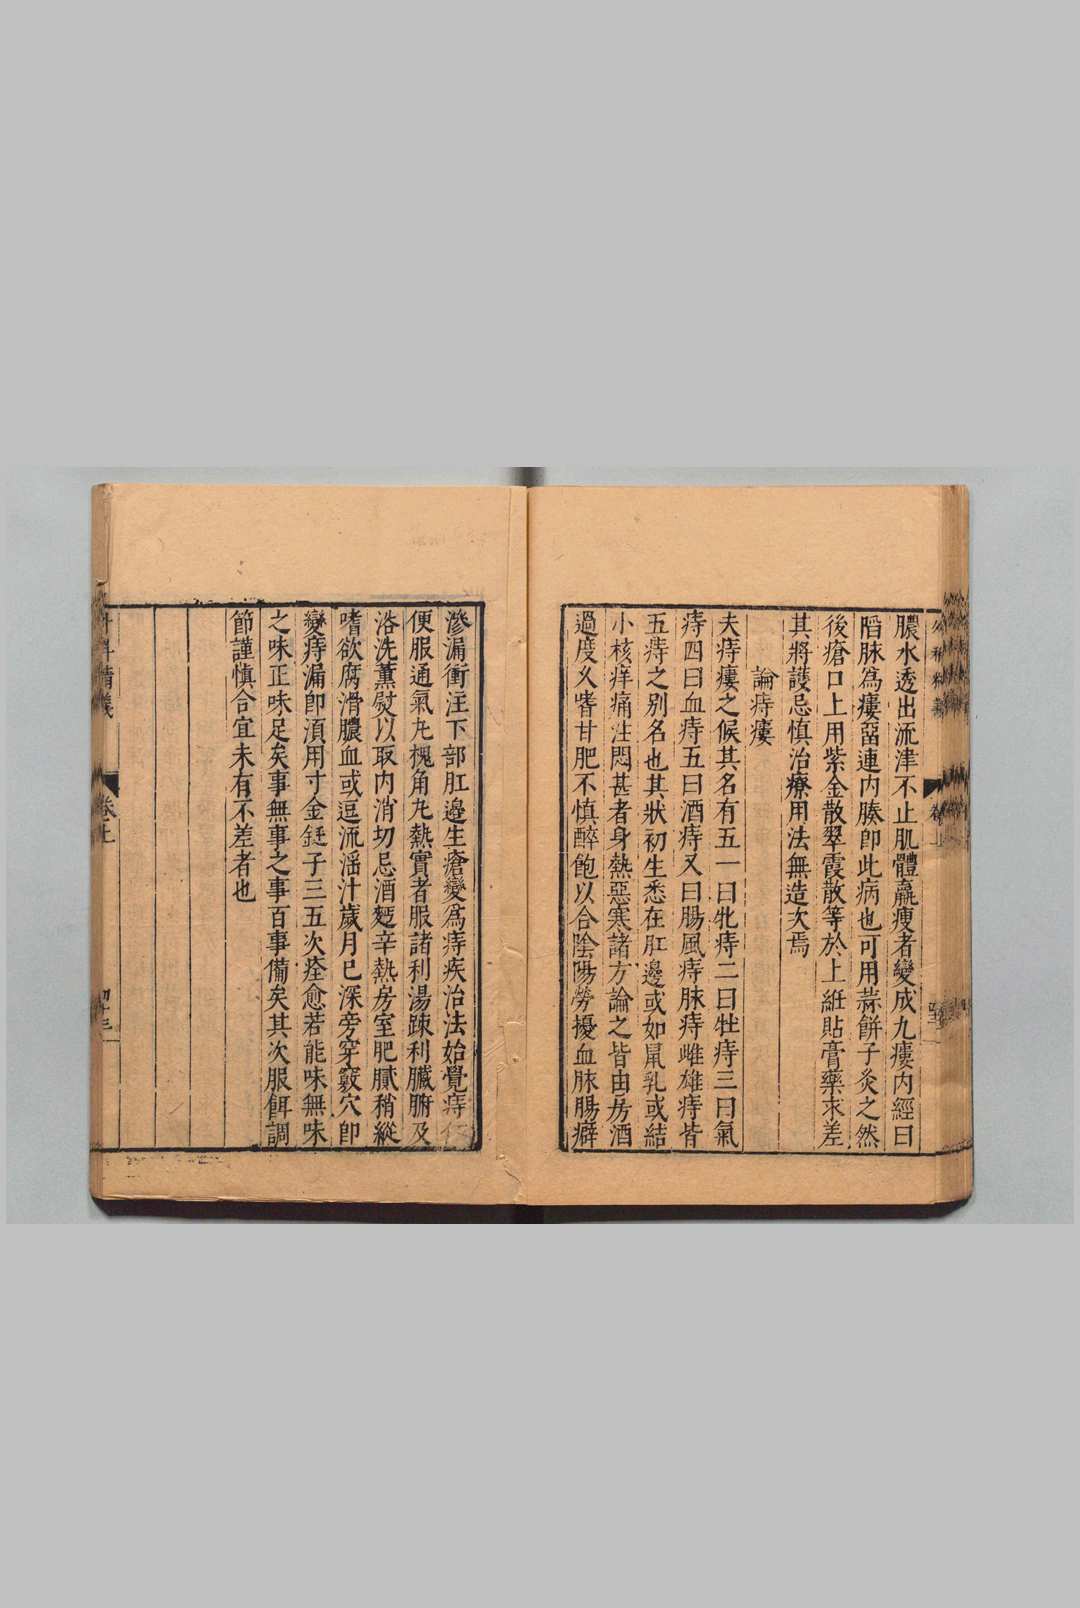 膿水透出流津不止肌體羸瘦者變成九瘻内經曰
陷脉為瘻畱連内腠即此病也可用蒜餅子灸之然
後瘡口上用紫金散翠霞散等於上紙貼膏藥求差
其將護忌慎治療用法無造次焉
論痔瘻
夫痔瘻之候其名有五一曰牝痔二曰牡痔三曰氣
痔四曰血痔五曰酒痔又曰腸風痔脉痔雌雄痔皆
五痔之别名也其狀初生悉在肛邊或如䑕乳或結
小核痒痛注悶甚者身熱惡寒諸方論之皆由房酒
過度久嗜甘肥不慎醉飽以合陰陽勞擾血脉腸癖
滲漏衝注下部肛邊生瘡變為痔疾治法始覺痔
便服通氣丸槐角丸熱實者服諸利湯踈利臟腑及
洛洗薰熨以取内消切忌酒麪辛熱房室肥膩稍縱
嗜欲腐滑膿血或逗流滛汁歲月已深旁穿竅穴即
變痔漏即湏用寸金錠子三五次痊愈若能味無味
之味正味足矣事無事之事百事備矣其次服餌調
節謹慎合宜未有不差者也
精義
卷上